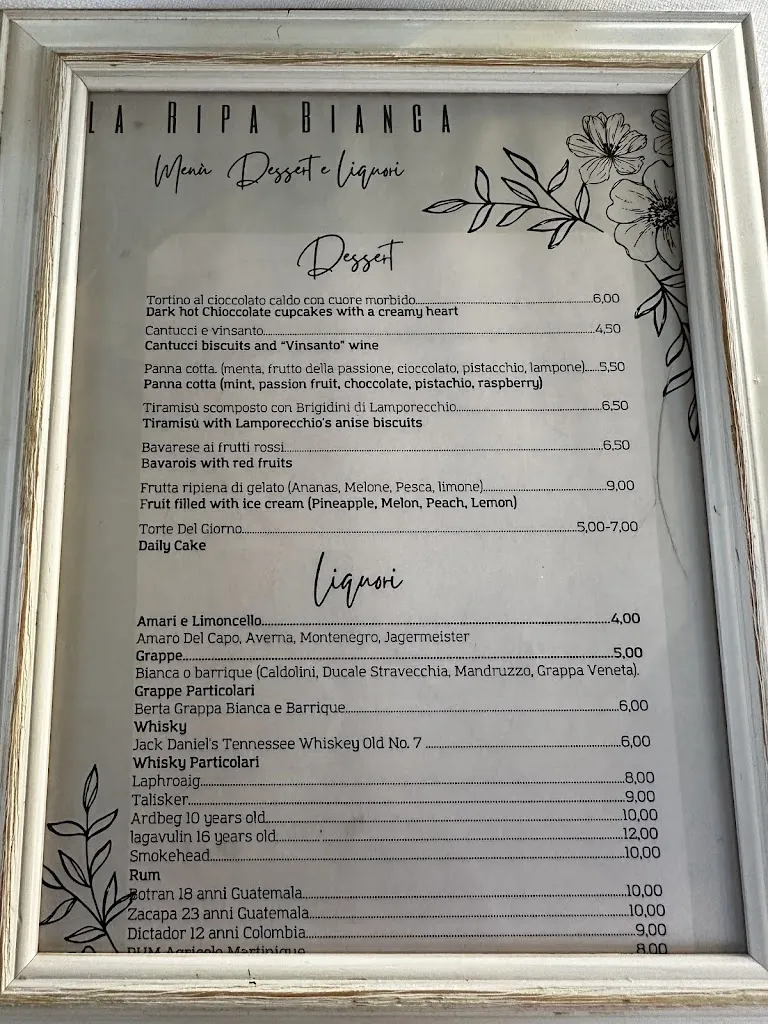 LA RIPA BIANCA
Menù Dessert e Liquori
Dessert
Tortino al cioccolato caldo con cuore morbido......6,00
Dark hot Chioccolate cupcakes with a creamy heart
Cantucci e vinsanto......4,50
Cantucci biscuits and “Vinsanto” wine
Panna cotta. (menta, frutto della passione, cioccolato, pistacchio, lampone)......5,50
Panna cotta (mint, passion fruit, choccolate, pistachio, raspberry)
Tiramisù scomposto con Brigidini di Lamporecchio......6,50
Tiramisù with Lamporecchio's anise biscuits
Bavarese ai frutti rossi......6,50
Bavarois with red fruits
Frutta ripiena di gelato (Ananas, Melone, Pesca, limone)......9,00
Fruit filled with ice cream (Pineapple, Melon, Peach, Lemon)
Torte Del Giorno......5,00-7,00
Daily Cake
Liquori
Amari e Limoncello......4,00
Amaro Del Capo, Averna, Montenegro, Jagermeister
Grappe......5,00
Bianca o barrique (Caldolini, Ducale Stravecchia, Mandruzzo, Grappa Veneta).
Grappe Particolari
Berta Grappa Bianca e Barrique......6,00
Whisky
Jack Daniel's Tennessee Whiskey Old No. 7 ......6,00
Whisky Particolari
Laphroaig......8,00
Talisker......9,00
Ardbeg 10 years old......10,00
lagavulin 16 years old......12,00
Smokehead......10,00
Rum
Botran 18 anni Guatemala......10,00
Zacapa 23 anni Guatemala......10,00
Dictador 12 anni Colombia......9,00
RUM Agricolo Martinique......8,00